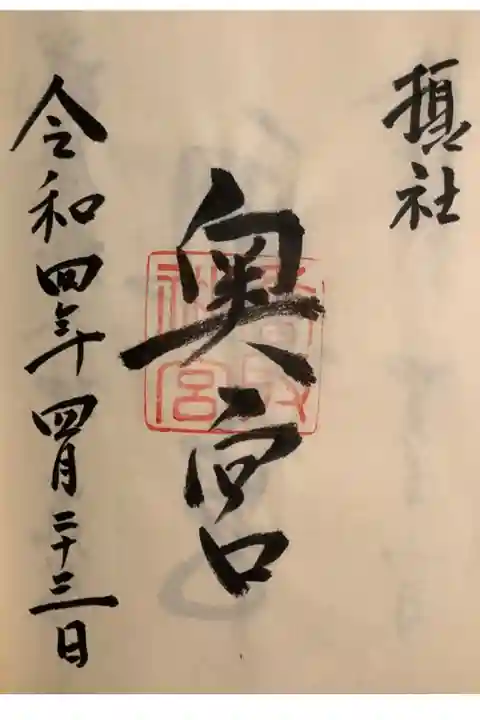 摂社
奥宮
令和四年四月二十三日